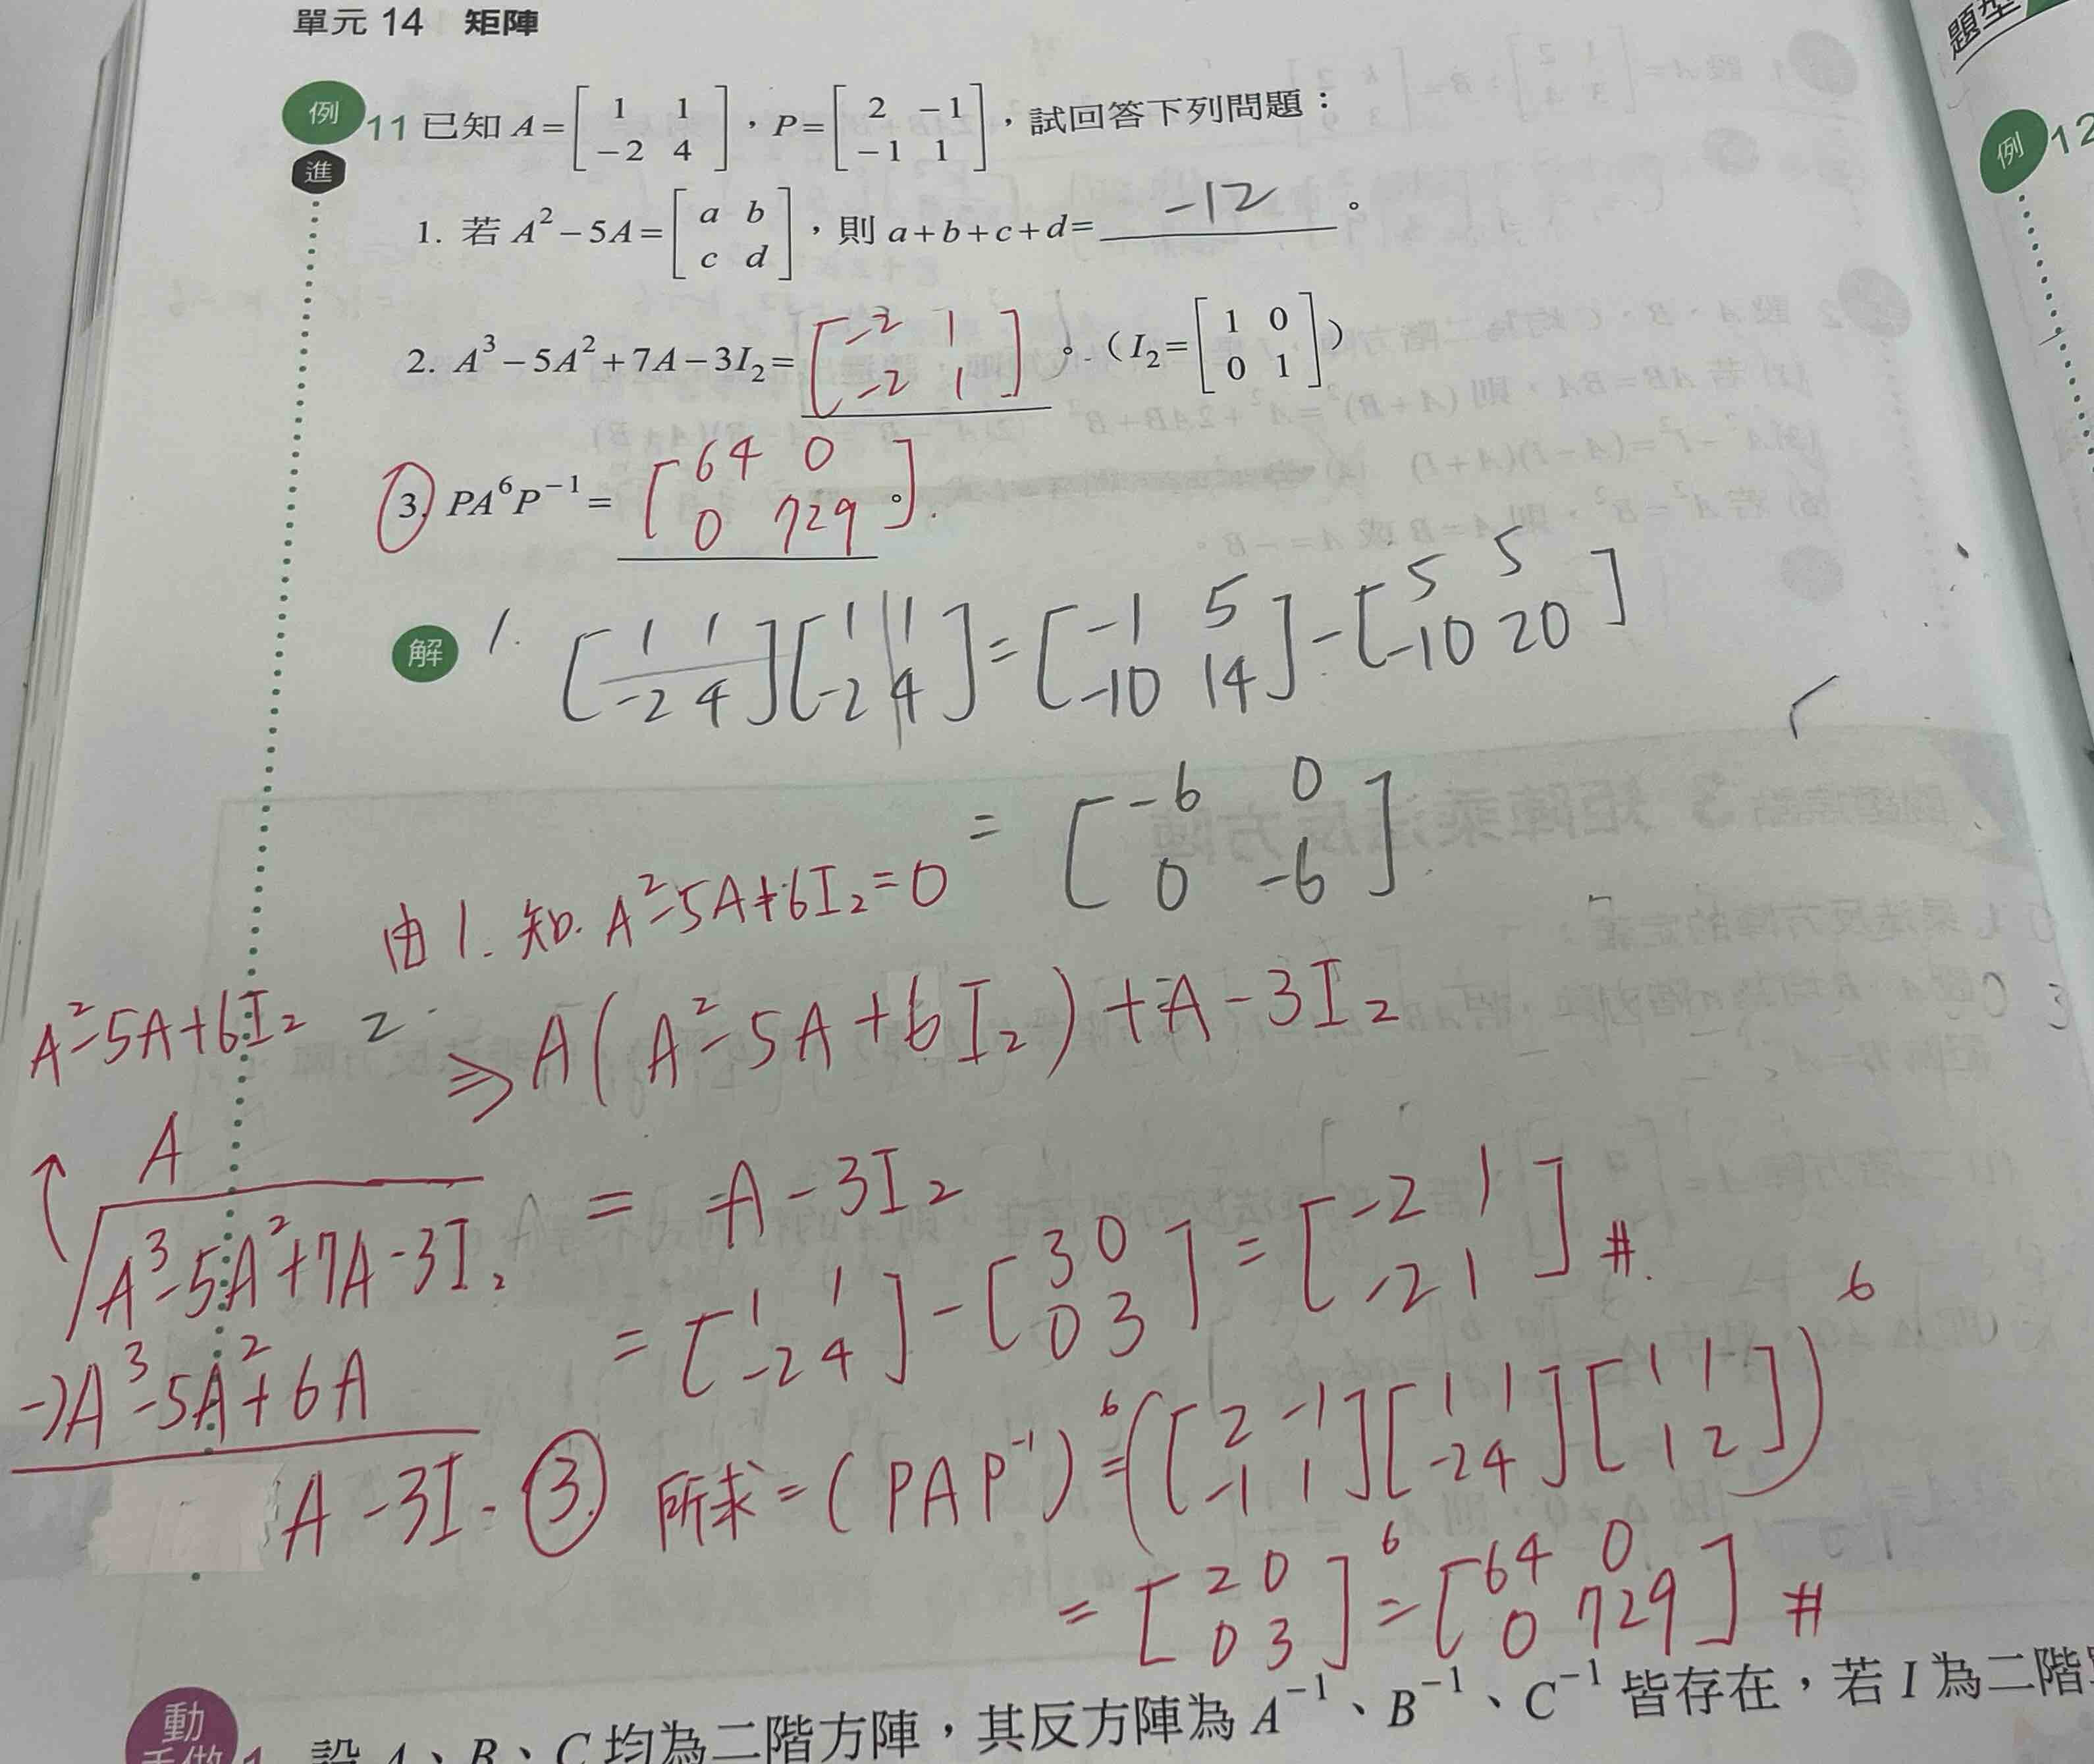 單元 14 矩陣
題型
例 11 已知 A=[1 1; -2 4],P=[2 -1; -1 1],試回答下列問題:
進
1. 若 A²-5A=[a b; c d],則 a+b+c+d= -12 。
2. A³-5A²+7A-3I₂=[-2 1; -2 1]。(I₂=[1 0; 0 1])
3. PA⁶P⁻¹=[64 0; 0 729]。
解 1. [1 1; -2 4][1 1; -2 4]=[-1 5; -10 14]-[5 5; -10 20]
=[-6 0; 0 -6]
由 1. 知. A²-5A+6I₂=0
2. ⇒ A(A²-5A+6I₂)+A-3I₂
= A-3I₂
=[1 1; -2 4]-[3 0; 0 3]=[-2 1; -2 1] #.
A²-5A+6I₂
A
A³-5A²+7A-3I₂
-)A³-5A²+6A
A-3I.
③. 所求=(PAP⁻¹)⁶=([2 -1; -1 1][1 1; -2 4][1 1; 1 2])⁶
=[2 0; 0 3]⁶=[64 0; 0 729] #
動
手做 1 設 A、B、C 均為二階方陣,其反方陣為 A⁻¹、B⁻¹、C⁻¹ 皆存在,若 I 為二階
例 12